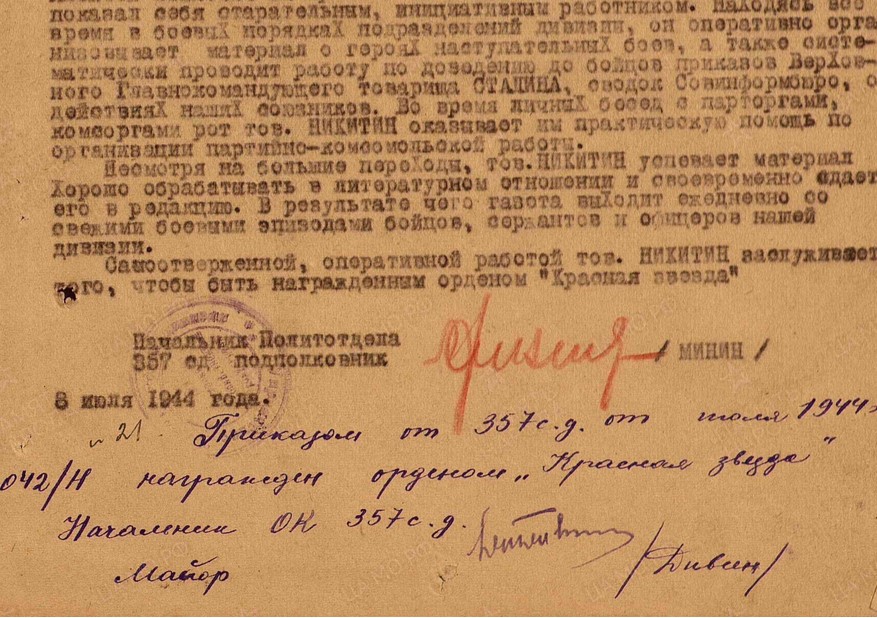 показал себя старательным, инициативным работником. Находясь все
время в боевых порядках подразделений дивизии, он оперативно орга
низовывает материал о героях наступательных боев, а также систе-
матически проводит работу по доведению до бойцов приказов Верхов-
ного Главнокомандующего товарища СТАЛИНА, сводок Совинформбюро, о
действиях наших союзников. Во время личных бесед с парторгами,
комсоргами рот тов. НИКИТИН оказывает им практическую помощь по
организации партийно-комсомольской работы.
Несмотря на большие переходы, тов.НИКИТИН успевает материал
хорошо обрабатывать в литературном отношении и своевременно сдает
его в редакцию. В результате чего газета выходит ежедневно со
свежими боевыми эпизодами бойцов, сержантов и офицеров нашей
дивизии.
Самоотверженной, оперативной работой тов. НИКИТИН заслуживает
того, чтобы быть награжденным орденом "Красная звезда"
Начальник Политотдела
357 сд подполковник / МИНИН /
8 июля 1944 года.
21 Приказом от 357 с.д. от июля 1944
042/Н награжден орденом „Красная звезда"
Начальник ОК 357 с.д.
Майор /Дивин/